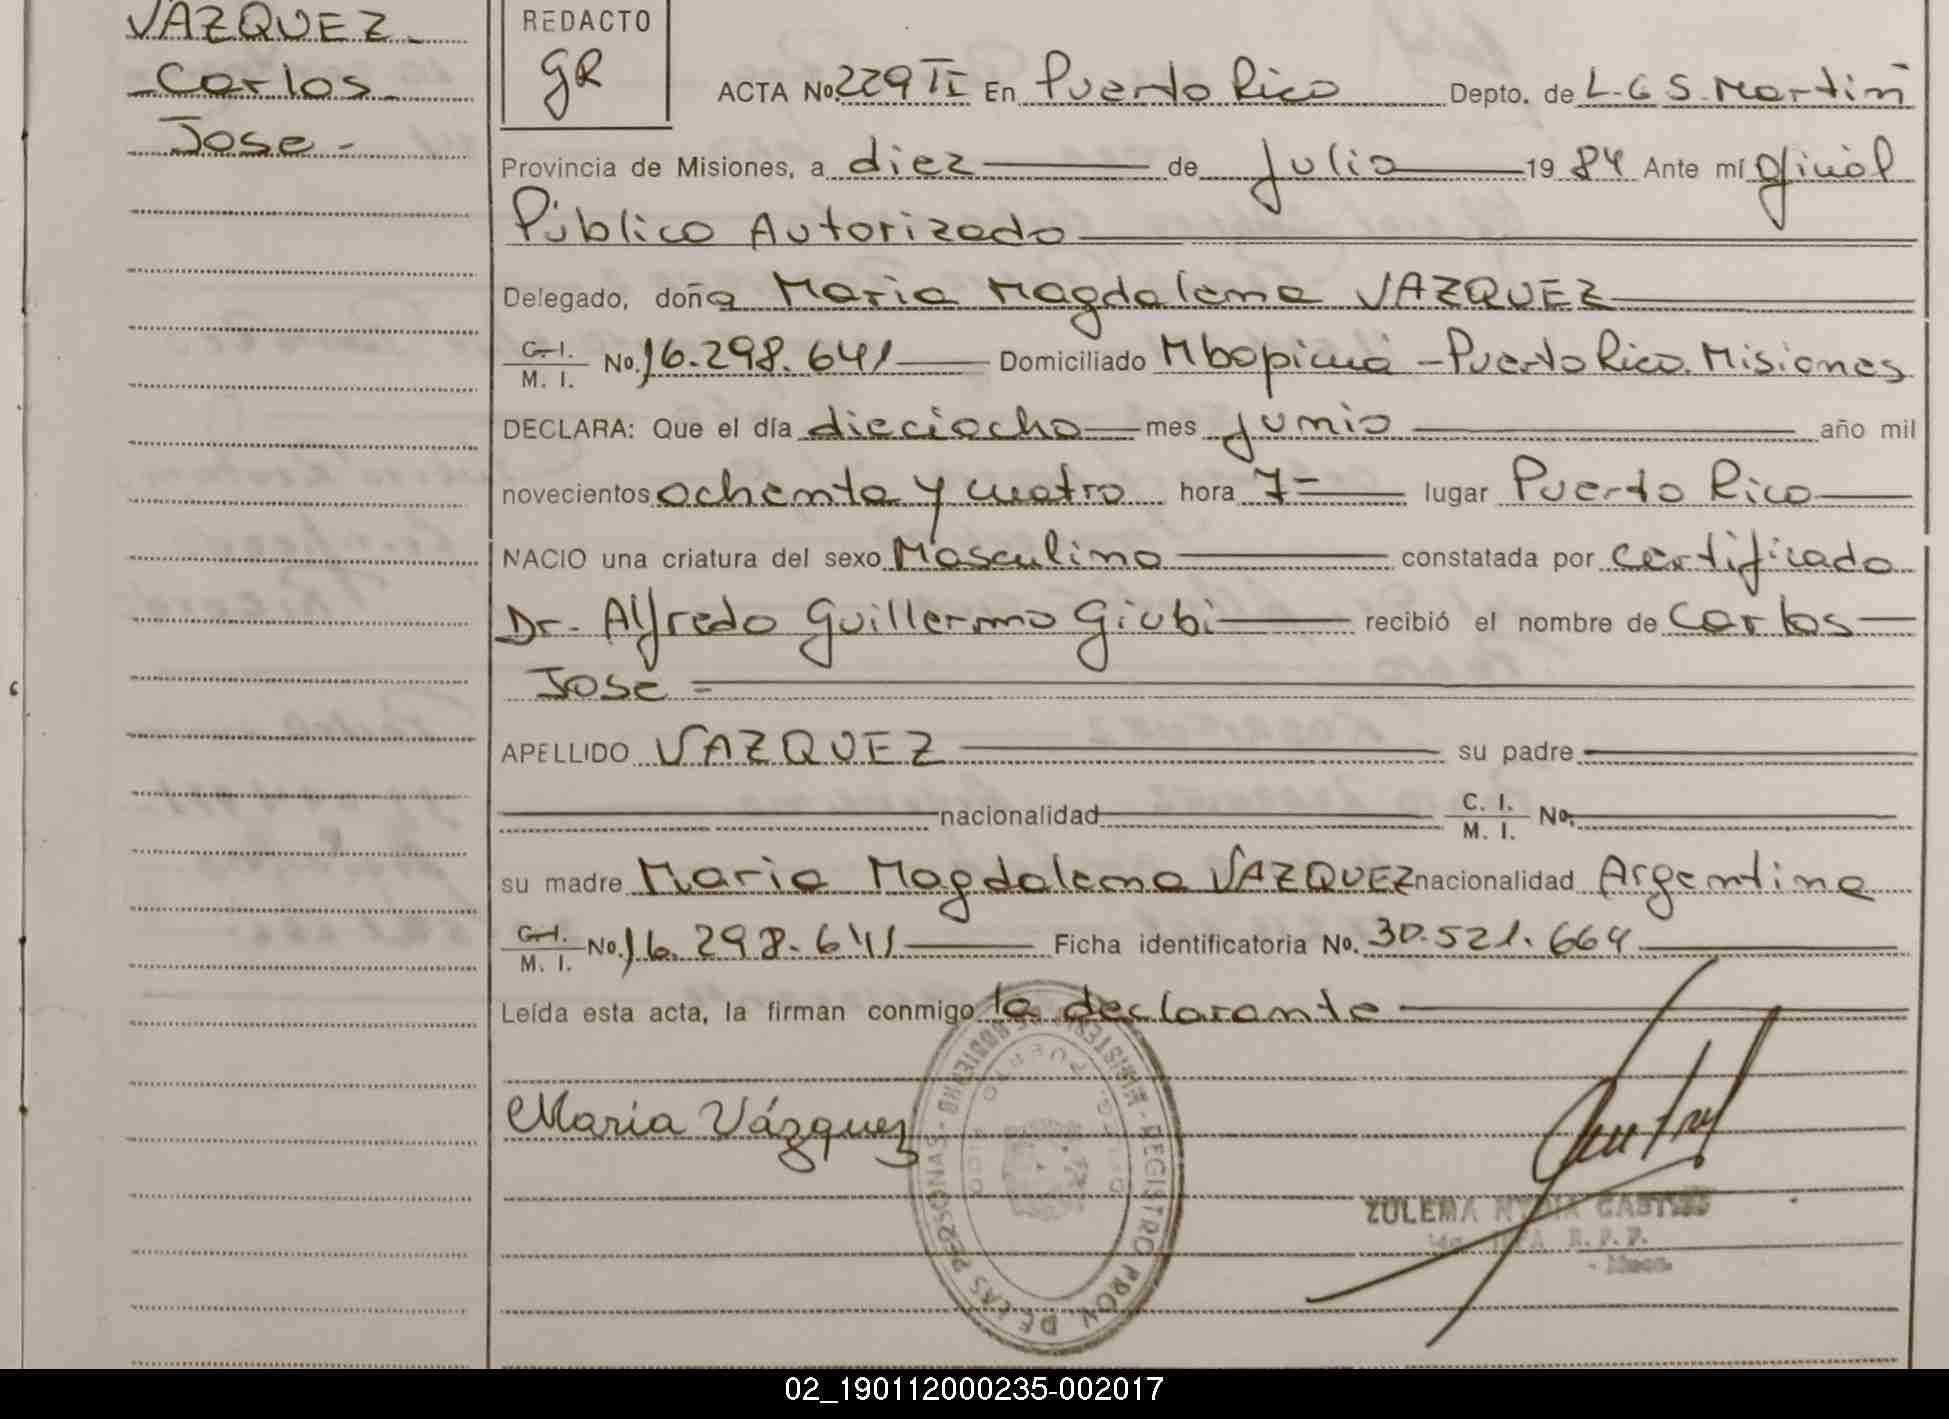 VAZQUEZ
Carlos
Jose -
REDACTO
GR
ACTA No. 229 TI En Puerto Rico Depto. de L.G S. Martin
Provincia de Misiones, a diez de Julio 1984 Ante mí Oficial
Público Autorizado
Delegado, doña Maria Magdalena VAZQUEZ
C. I. M. I. No. 16.298.641 Domiciliado Mbopicuá - Puerto Rico. Misiones
DECLARA: Que el día dieciocho mes junio año mil
novecientos ochenta y cuatro hora 7 lugar Puerto Rico
NACIO una criatura del sexo Masculino constatada por certificado
Dr. Alfredo Guillermo Giubi recibió el nombre de Carlos
Jose
APELLIDO VAZQUEZ su padre
nacionalidad C. I. M. I. No.
su madre Maria Magdalena VAZQUEZ nacionalidad Argentina
C. I. M. I. No. 16.298.641 Ficha identificatoria No. 30.521.664
Leída esta acta, la firman conmigo la declarante
María Vázquez
REGISTRO PROV. DE LAS PERSONAS
ZULEMA
02_190112000235-002017